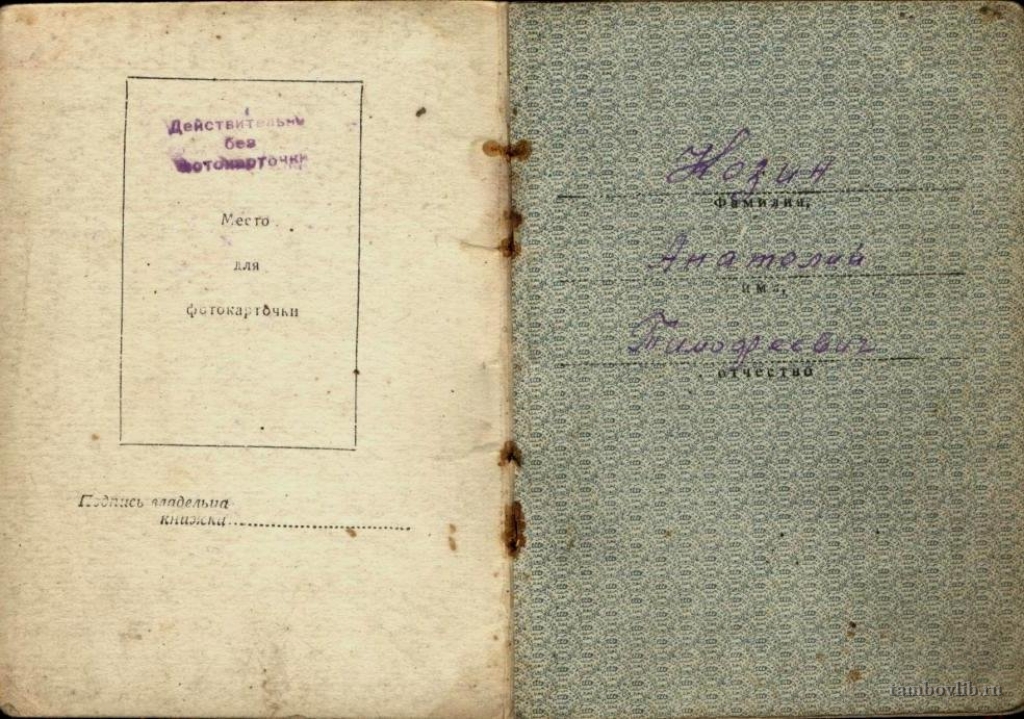 Действительны
без
фотокарточки
Место
для
фотокарточки
Подпись владельца
книжки
Нозин
фамилия,
Анатолий
имя,
Тимофеевич
отчество
tambovlib.ru